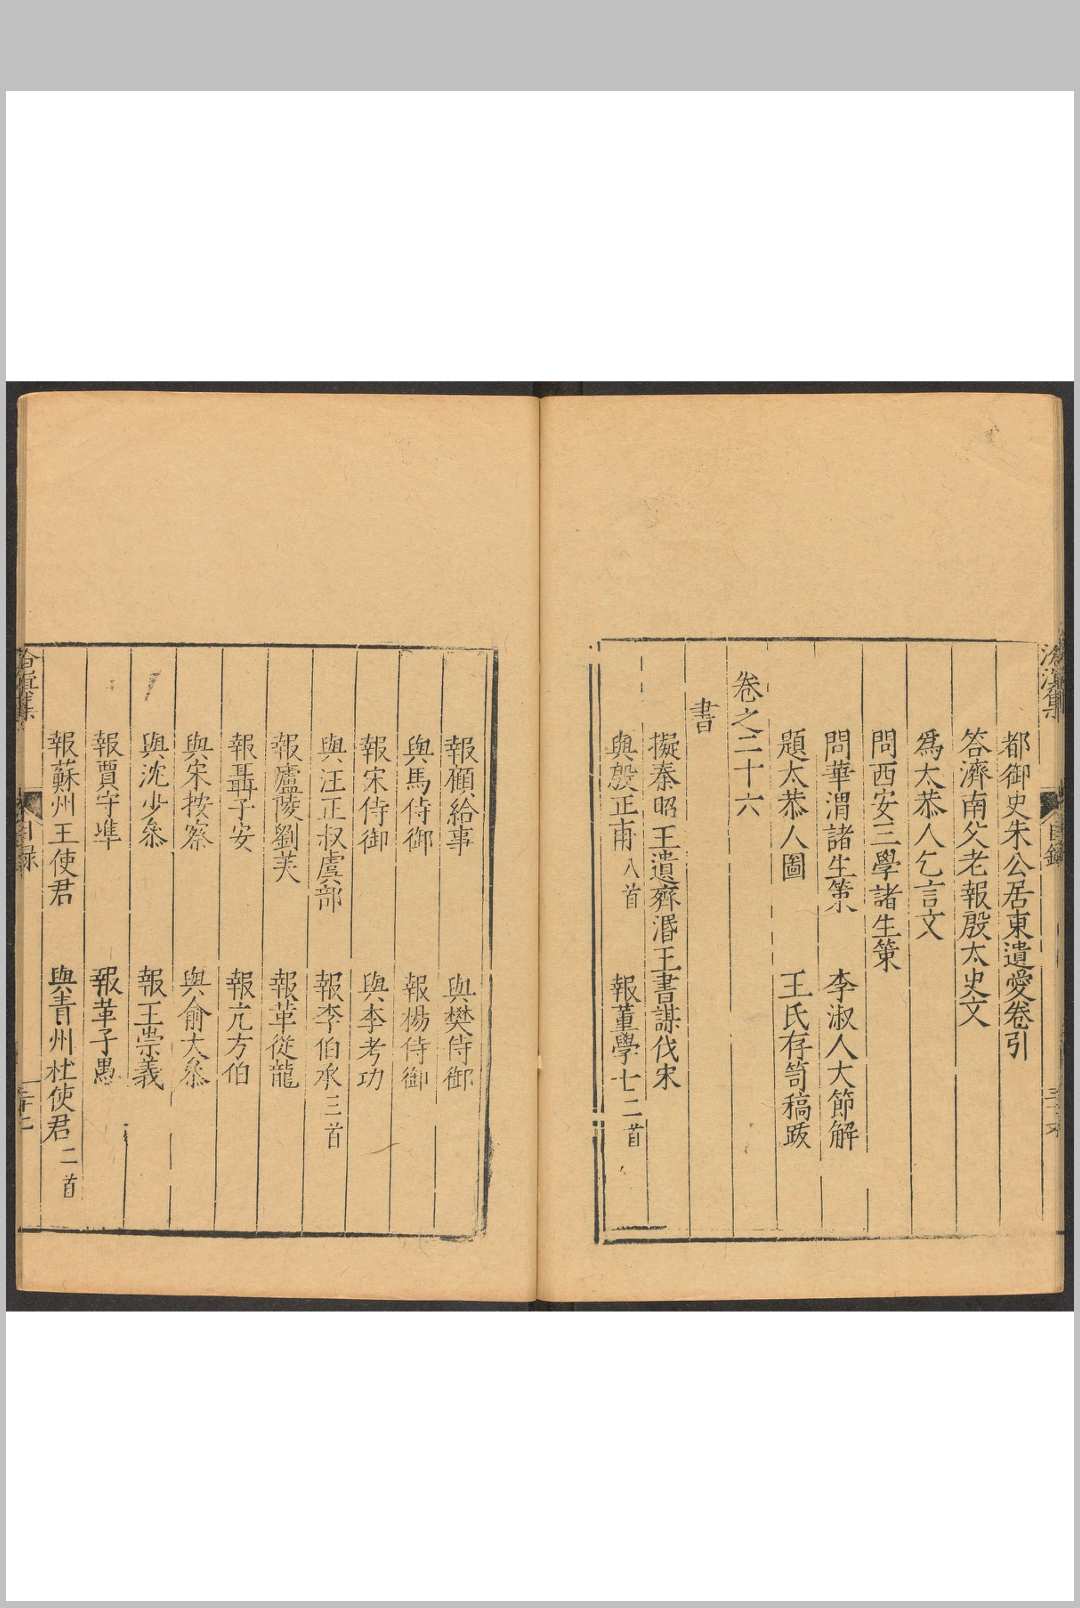 滄溟集
目錄
都御史朱公居東遺愛卷引
答濟南父老報殷太史文
爲太恭人乞言文
問西安三學諸生策
問華渭諸生策　李淑人大節解
題太恭人圖　王氏存笥稿跋
卷之二十六
書
擬秦昭王遺齊湣王書謀伐宋
與殷正甫八首　報董學士二首
報顧給事　與樊侍御
與馬侍御　報楊侍御
報宋侍御　與李考功
與汪正叔虞部　報李伯承三首
報廬陵劉芙　報革從龍
報聶子安　報亢方伯
與宋按察　與俞大參
與沈少參　報王崇義
報賈守準　報革子愚
報蘇州王使君　與青州杜使君二首